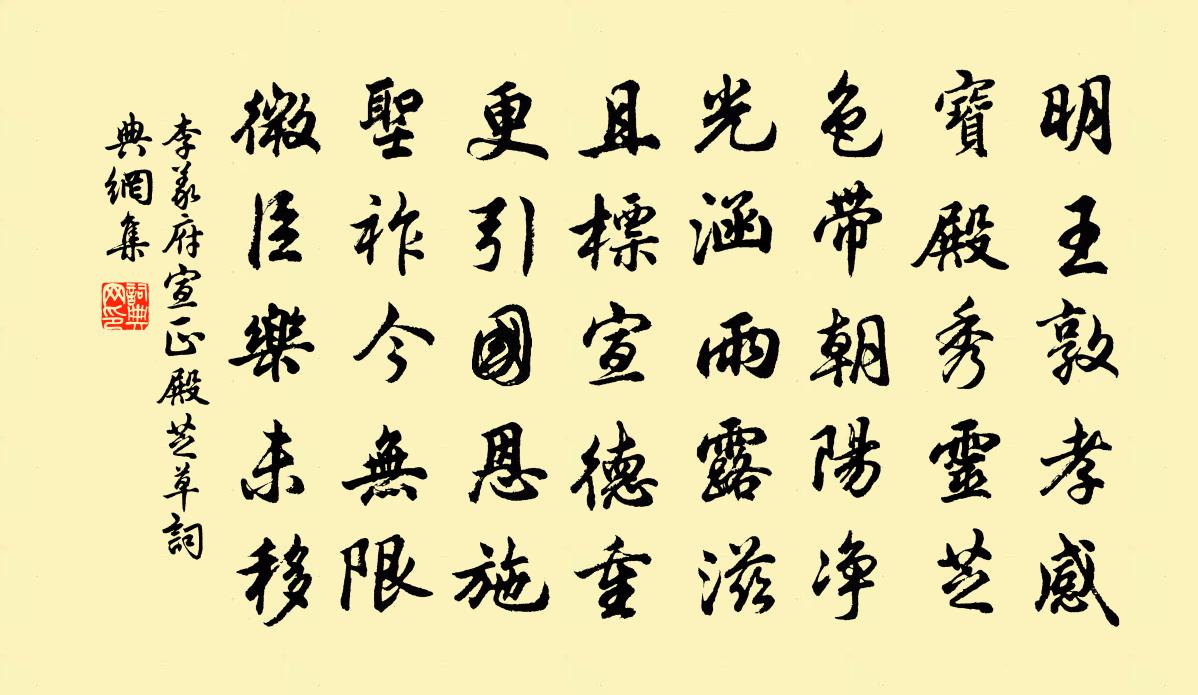 明王敦孝感
寶殿秀靈芝
色帶朝陽净
光涵雨露滋
且標宣德重
更引國恩施
聖祚今無限
微臣樂未移
李義府宣正殿芝草詞
典網集
詞典
网印